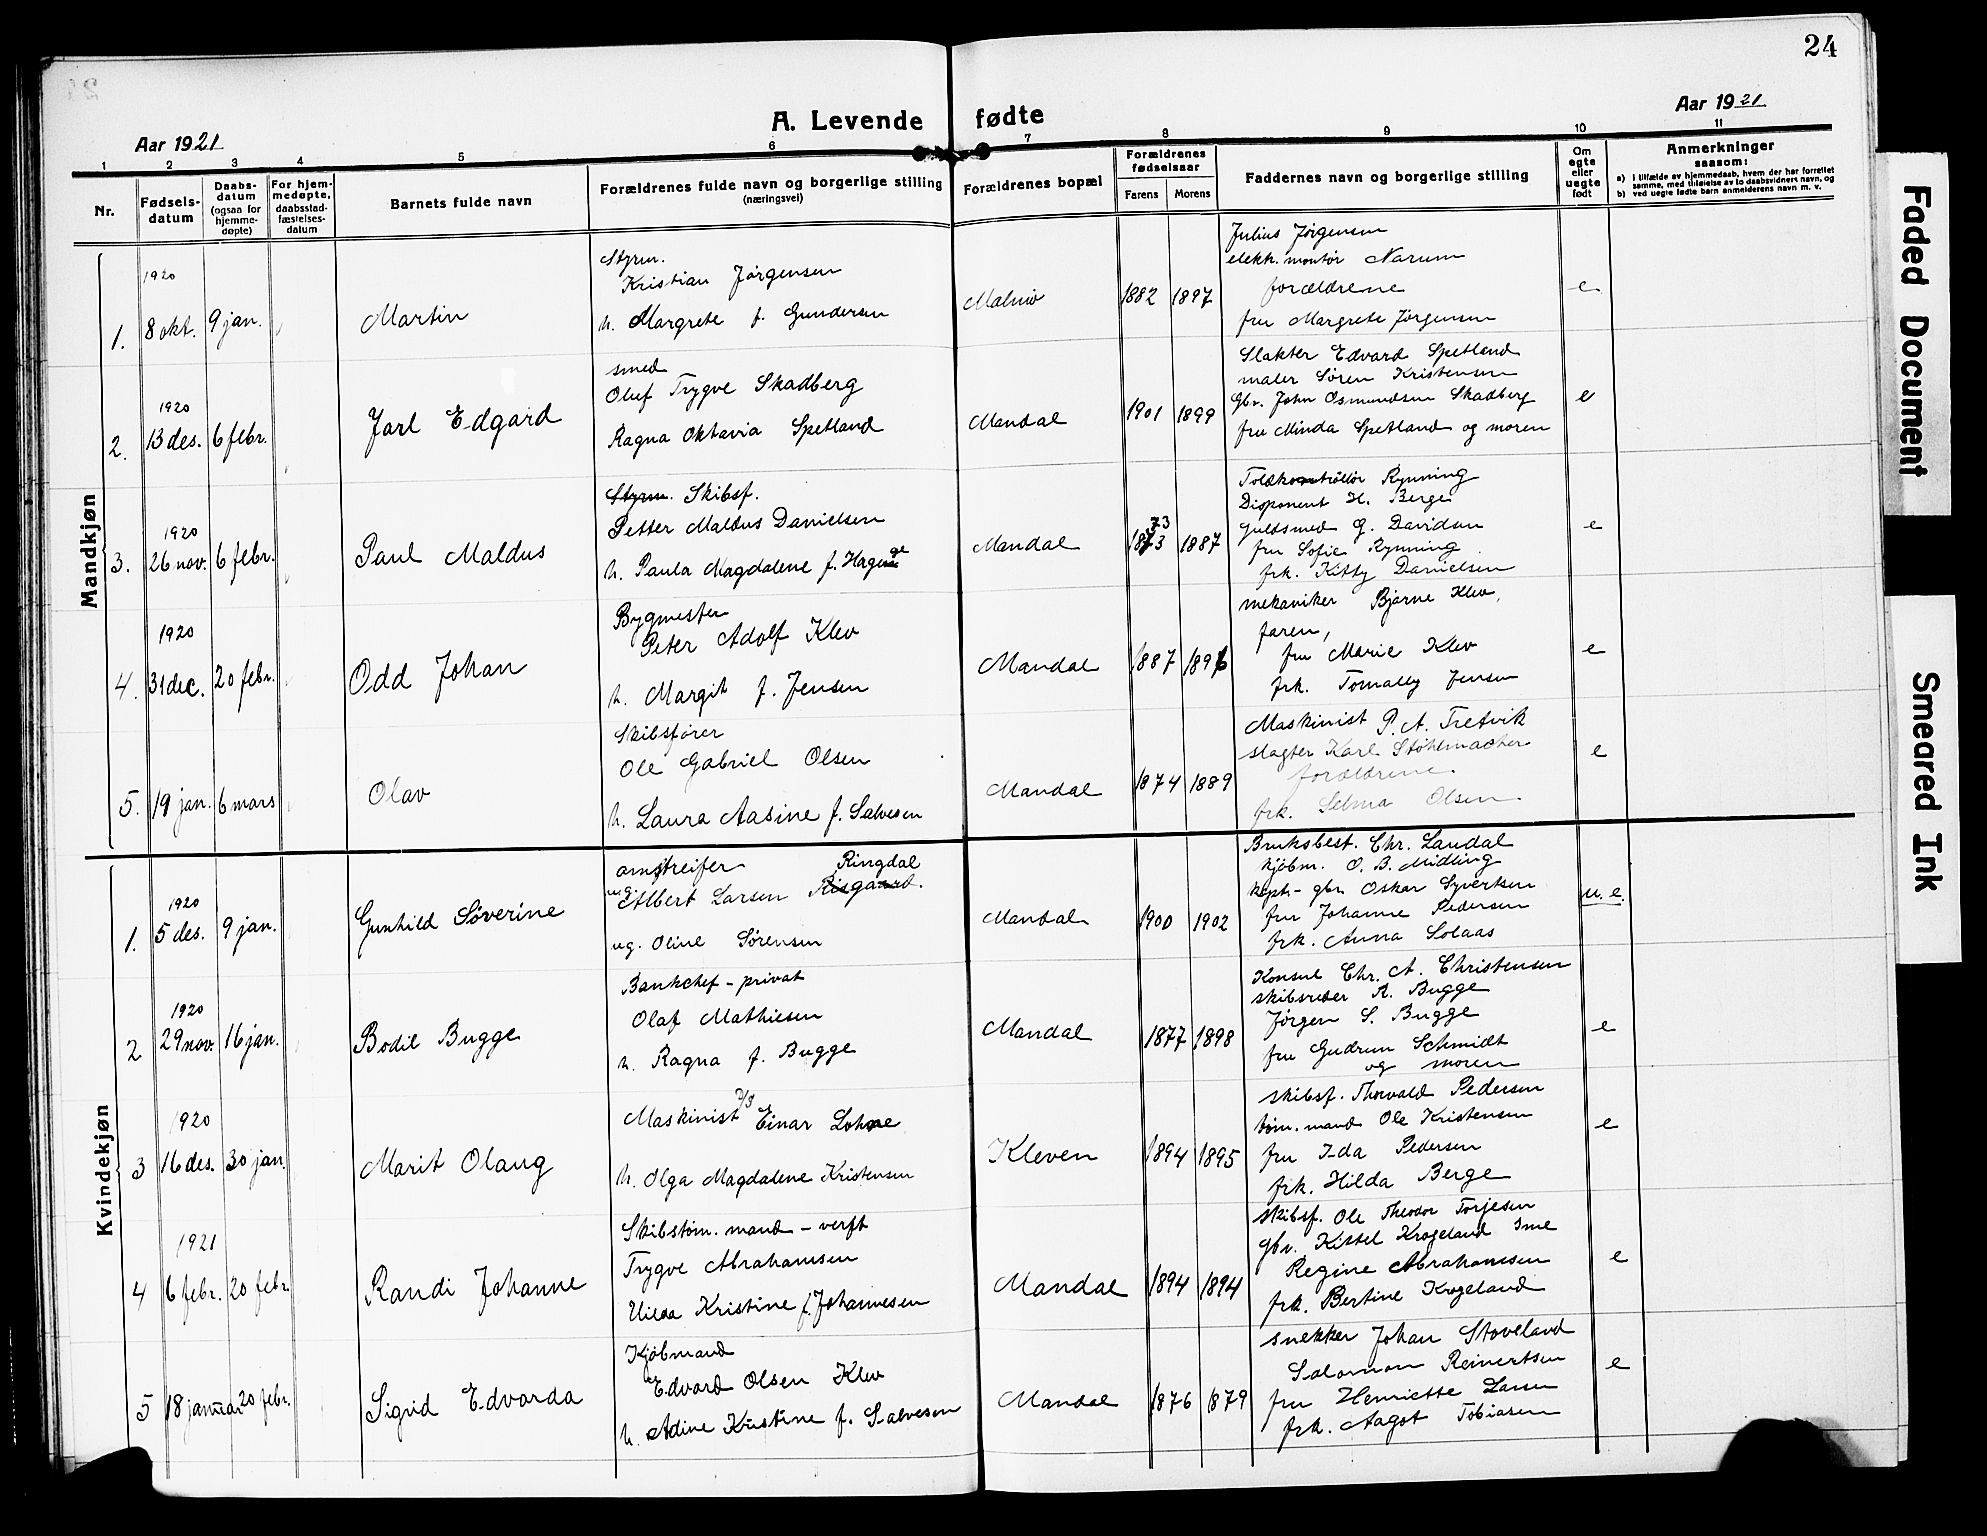 24
Aar 1921
A. Levende fødte
Aar 1921
1 2 3 4 5 6 7 8 9 10 11
Nr.
Fødsels-
datum
Daabs-
datum
(ogsaa for
hjemme-
døpte)
For hjem-
medøpte,
daabsstad-
fæstelses-
datum
Barnets fulde navn
Forældrenes fulde navn og borgerlige stilling
(næringsvei)
Forældrenes bopæl
Forældrenes
fødselsaar
Farens Morens
Faddernes navn og borgerlige stilling
Om
egte
eller
uegte
født
Anmerkninger
saasom:
a) i tilfælde av hjemmedaab, hvem der har forrettet
samme, med tilføielse av to daabsvidners navn, og
b) ved uegte fødte børn anmelderens navn m. v.
Mandkjøn
1.
1920
8 okt.
9 jan.
Martin
Styrm.
Kristian Jørgensen
h. Margrete f. Gundersen
Malmø
1882 1897
Julius Jørgensen
elekk. montør Narum
forældrene
fru Margrete Jørgensen
e
2.
1920
13 des.
6 febr.
Jarl Edgard
smed
Oluf Trygve Skadberg
Ragna Oktavia Spetland
Mandal
1901 1899
Slakter Edvard Spetland
maler Søren Kristensen
gbr. John Osmundsen Skadberg
fru Minda Spetland og moren
e
3.
1920
26 nov.
6 febr.
Paul Maldus
Styrm. Skibsf.
Petter Maldus Danielsen
h. Paula Magdalene f.
Mandal
73
1873 1887
Toldkontrollør Rynning
Disponent H. Berge
guldsmed G. Davidsen
fru Sofie Rynning
frk. Kitty Danielsen
e
4.
1920
31 dec.
20 febr.
Odd Johan
Bygmester
Peter Adolf Klev
h. Margit f. Jensen
Mandal
1887 1896
mekaniker Bjarne Klev,
faren,
fru Marie Klev
frk. Tomally Jensen
e
5.
19 jan.
6 mars
Olav
Skibsfører
Ole Gabriel Olsen
h. Laura Aasine f. Salvesen
Mandal
1874 1889
Maskinist P. A. Tretvik
slagter Karl Støhlmacher
forældrene
frk. Selma Olsen.
e
Kvindekjøn
1.
1920
5 des.
9 jan.
Gunhild Søverine
omstreifer Ringdal
ug. Albert Larsen Risgaard.
ug. Oline Sørensen
Mandal
1900 1902
Bruksbest. Chr. Landal
kjøbm. O. B. Midling
gbr Oskar Syvertsen
fru Johanne Pedersen
frk. Anna Solaas
u. e.
2
1920
29 nov
16 jan.
Bodil Bugge
Bankchef - privat
Olaf Mathiesen
h. Ragna f. Bugge
Mandal
1877 1898
Konsul Chr. A. Christensen
skibsreder A. Bugge
Jørgen S. Bugge
fru Gudrun Schmidt
og moren
e
3
1920
16 des.
30 jan.
Marit Olaug
Maskinist D/S Einar Lohne
h. Olga Magdalene Kristensen
Kleven
1894 1895
skibsf. Thorvald Pedersen
tøm. mand Ole Kristensen
fru Ida Pedersen
frk. Hilda Berge
e
4
1921
6 febr.
20 febr.
Randi Johanne
Skibstøm. mand - verft
Trygve Abrahamsen
Hilda Kristine f. Johannesen
Mandal
1894 1894
skibsf. Ole Theodor Torjesen
gbr. Kittel Krogeland Ime
Regine Abrahamsen
frk. Bertine Krogeland
e
5
18 januar
20 febr.
Sigrid Edvarda
Kjøbmand
Edvard Olsen Klev
h. Adine Kristine f. Salvesen
Mandal
1876 1879
snekker Johan Stoveland
Salomon Reinertsen
fru Henriette Larsen
frk. Aagot Tobiasen
e
Faded Document
Smeared Ink